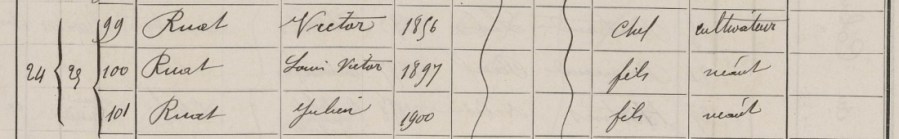 99 Ruat Victor 1856 chef cultivateur
24 29 100 Ruat Louis Victor 1897 fils néant
101 Ruat Julien 1900 fils néant